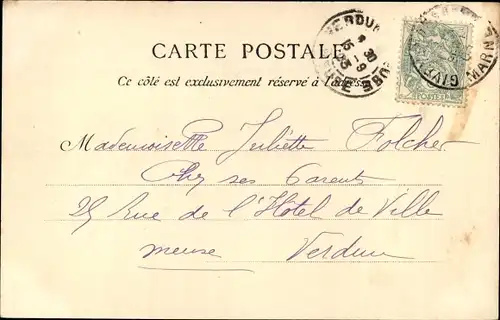 CARTE POSTALE
Ce côté est exclusivement réservé à l'adresse
VERDUN
MEUSE
GIVRY
MARNE
POSTES
Mademoiselle Juliette Folcher
Chez ses Parents
25 Rue de l'Hotel de Ville
meuse Verdun